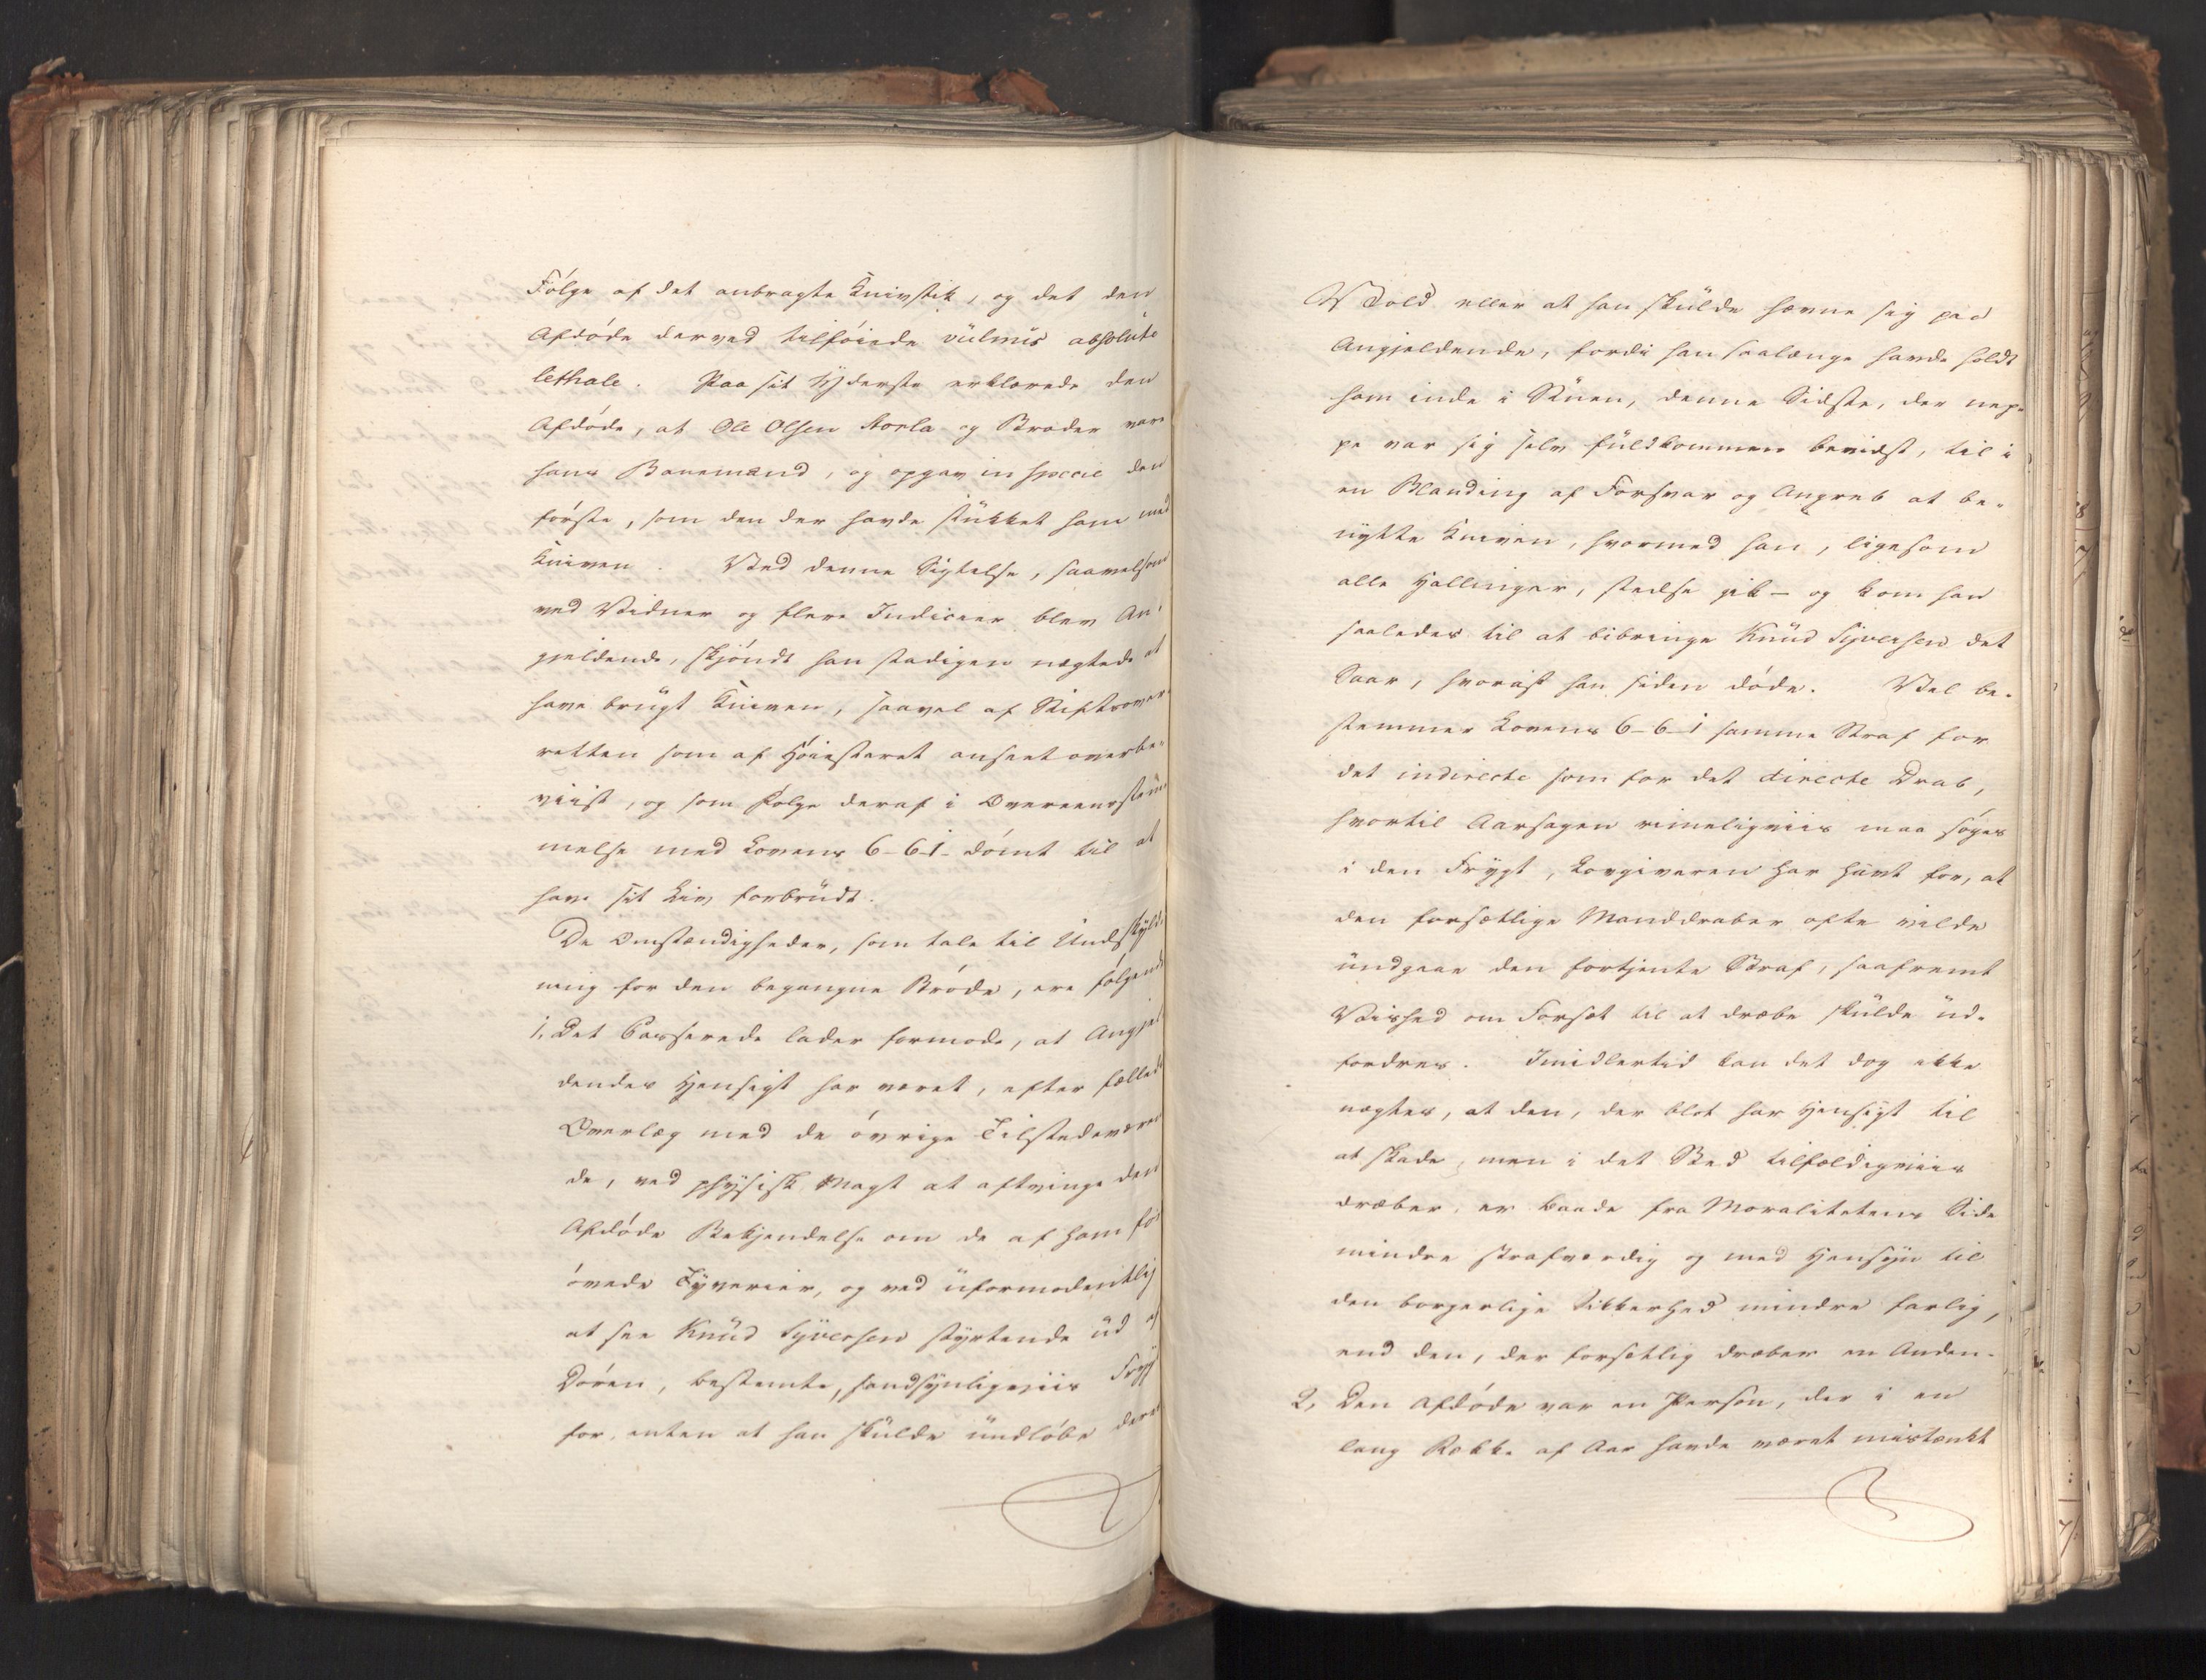 Følge af det anbragte Knivstik, og det den
Afdøde derved tilføiede vulnus absolute
lethale. Paa sit Yderste erklærede den
Afdøde, at Ole Olsen Storla og Broder vare
hans Banemænd, og opgav in specie den
første, som den der havde stukket ham med
Kniven. Ved denne Sigtelse, saavelsom
ved Vidner og flere Indicier blev An-
gjeldende, skjøndt han stadigen nægtede at
have brugt Kniven, saavel af Stiftsover-
retten som af Høiesteret anseet overbe-
viist, og som Følge deraf i Overeenstem-
melse med Lovens 6-6-1- dømt til at
have sit Liv forbrudt.
De Omstændigheder, som tale til Undskyld-
ning for den begangne Brøde, ere følgende
1. Det Passerede lader formode, at Angjel-
dendes Hensigt har været, efter fælleds
Overlæg med de øvrige Tilstedeværen-
de, ved physisk Magt at aftvinge den
Afdøde Bekjendelse om de af ham for-
øvede Tyverier, og ved uformodentlig
at see Knud Syversen styrtende ud af
Døren, bestemte, sandsynligviis Frygt
for, enten at han skulde undløbe deres
Vold eller at han skulde hævne sig paa
Angjeldende, fordi han saalænge havde holdt
ham inde i Stuen, denne Sidste, der nep-
pe var sig selv fuldkommen bevidst, til i
en Blanding af Forsvar og Angreb at be-
nytte Kniven, hvormed han, ligesom
alle Hallinger, stedse gik – og kom han
saaledes til at bibringe Knud Syversen det
Saar, hvoraf han siden døde. Vel be-
stemmer Lovens 6-6-1 samme Straf for
det indirecte som for det directe Drab,
hvortil Aarsagen rimeligviis maa søges
i den Frygt, Lovgiveren har havt for, at
den forsætlige Manddraber ofte vilde
undgaae den fortjente Straf, saafremt
Vished om Forsæt til at dræbe skulde ud-
fordres. Imidlertid kan det dog ikke
nægtes, at den, der blot har Hensigt til
at skade, men i det Sted tilfældigviis
dræber, er baade fra Moralitetens Side
mindre strafværdig og med Hensyn til
den borgerlige Sikkerhed mindre farlig,
end den, der forsætlig dræber en Anden.
2, Den Afdøde var en Person, der i en
lang Række af Aar havde været mistænkt